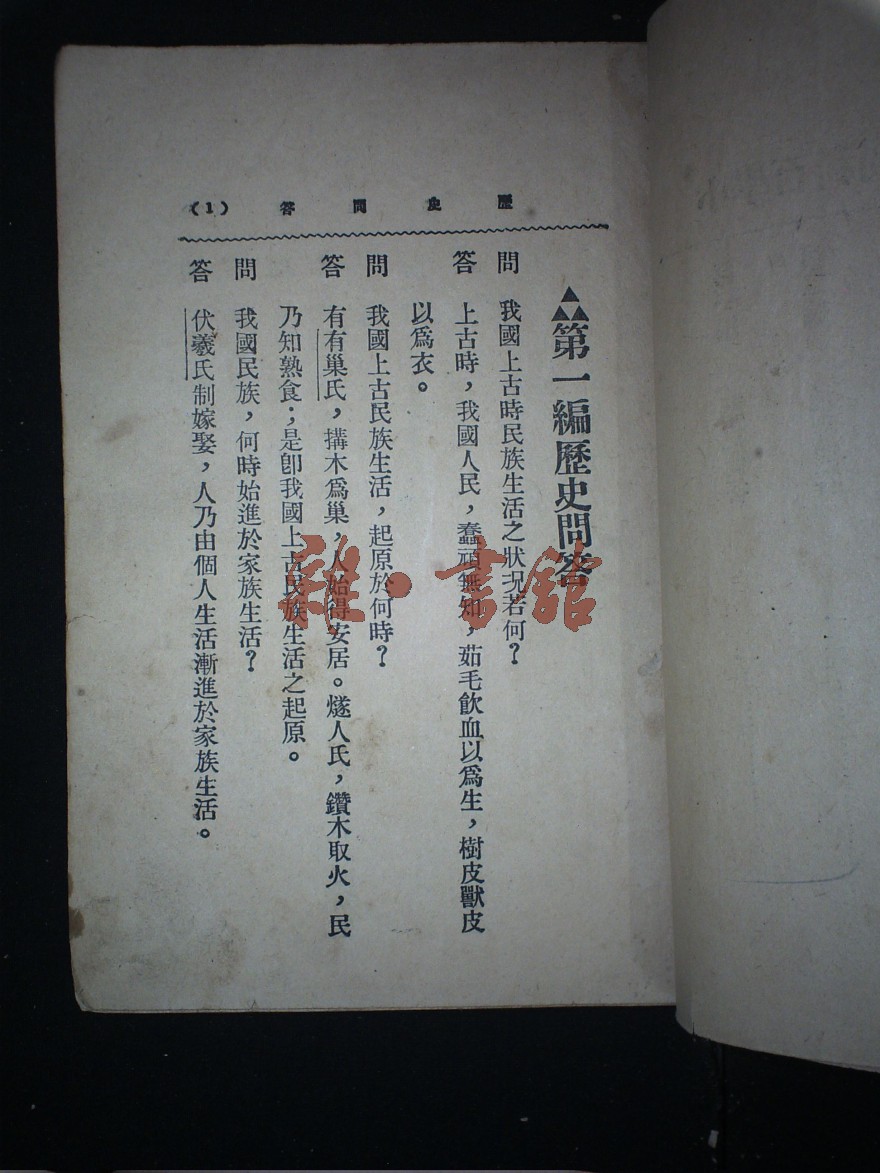 歷史問答 (1)
第一編歷史問答
問 我國上古時民族生活之狀況若何?
答 上古時,我國人民,蠢頑無知,茹毛飲血以爲生,樹皮獸皮
以爲衣。
問 我國上古民族生活,起原於何時?
答 有有巢氏,搆木爲巢,人始得安居。燧人氏,鑽木取火,民
乃知熟食;是卽我國上古民族生活之起原。
問 我國民族,何時始進於家族生活?
答 伏羲氏制嫁娶,人乃由個人生活漸進於家族生活。
雜·書館